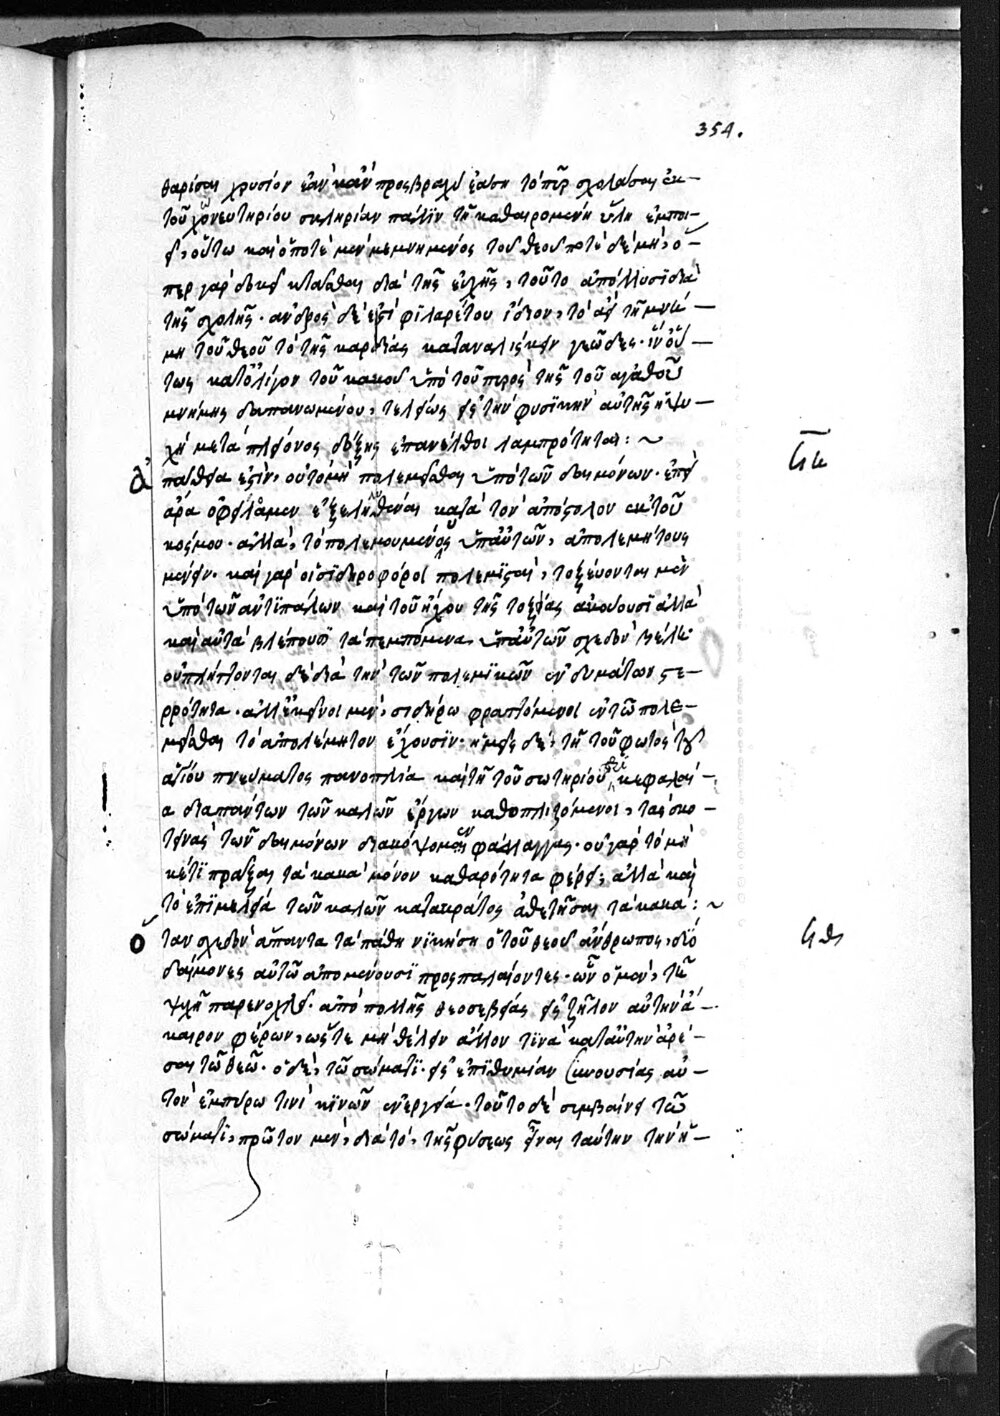 354.
θαρίσαι χρυσίον ἐὰν κἂν προσβραχὺ ἐάσῃ τὸ πῦρ σχολάσαι ἐκ
τοῦ χωνευτηρίου σκληρίαν πάλιν τῇ καθαιρομένῃ ὕλῃ ἐμποι-
εῖ, οὕτω καὶ ὁ ποτὲ μὲν μεμνημένος τοῦ θεοῦ ποτὲ δὲ μὴ, ὅ-
περ γὰρ δοκεῖ κτᾶσθαι διὰ τῆς εὐχῆς, τοῦτο ἀπόλλυσι διὰ
τῆς σχολῆς. ἀνδρὸς δέ ἐστι φιλαρέτου ἴδιον, τὸ ἀεὶ τῇ μνή-
μῃ τοῦ θεοῦ τὸ τῆς καρδίας καταναλίσκειν γεῶδες. ἵν' οὕ-
τως κατ' ὀλίγον τοῦ κακοῦ ὑπὸ τοῦ πυρὸς τῆς τοῦ ἀγαθοῦ
μνήμης δαπανωμένου, τελείως εἰς τὴν φυσικὴν αὐτῆς ἡ ψυ-
χὴ μετὰ πλείονος δόξης ἐπανέλθοι λαμπρότητα: ~
ἀπάθεια ἐστὶν, οὐ τὸ μὴ πολεμεῖσθαι ὑπὸ τῶν δαιμόνων. ἐπεὶ
ἄρα ὀφείλομεν ἐξεληλυθέναι κατὰ τὸν ἀπόστολον ἐκ τοῦ
κόσμου. ἀλλὰ, τὸ πολεμουμένους ὑπ' αὐτῶν, ἀπολεμήτους
μένειν. καὶ γὰρ οἱ σιδηροφόροι πολεμισταὶ, τοξεύονται μὲν
ὑπὸ τῶν ἀντιπάλων καὶ τοῦ ἤχου τῆς τοξείας ἀκούουσι ἀλλὰ
καὶ αὐτὰ βλέπουσι τὰ πεμπόμενα ὑπ' αὐτῶν σχεδὸν βέλη.
οὐ πλήττονται δὲ διὰ τὴν τῶν πολεμικῶν ἐνδυμάτων στε-
ρρότητα. ἀλλ' ἐκεῖνοι μὲν, σιδήρω φραττόμενοι ἐν τῶ πολε-
μεῖσθαι τὸ ἀπολέμητον ἔχουσιν. ἡμεῖς δὲ, τῇ τοῦ φωτὸς τοῦ
ἁγίου πνεύματος πανοπλία καὶ τῇ τοῦ σωτηρίου περικεφαλαί-
α διαπάντων τῶν καλῶν ἔργων καθοπλιζόμενοι, τὰς σκο-
τεινὰς τῶν δαιμόνων διακόψομεν φάλαγγας. οὐ γὰρ τὸ μὴ
κέτι πρᾶξαι τὰ κακὰ μόνον καθαρότητα φέρει, ἀλλὰ καὶ
τὸ ἐπιμελεία τῶν καλῶν κατακράτος ἀθετῆσαι τὰ κακὰ: ~
ὅταν σχεδὸν ἅπαντα τὰ πάθη νικήσῃ ὁ τοῦ θεοῦ ἄνθρωπος, δύο
δαίμονες αὐτῶ ἀπομένουσι προσπαλαίοντες. ὧν ὁ μὲν, τῇ
ψυχῇ παρενοχλεῖ. ἀπὸ πολλῆς θεοσεβείας εἰς ζῆλον αὐτὴν ἄ-
καιρον φέρων, ὥστε μὴ θέλειν ἄλλον τινὰ κατ' αὐτὴν ἀρέ-
σαι τῶ θεῶ. ὁ δὲ, τῶ σώματι. εἰς ἐπιθυμίαν συνουσίας αὐ-
τὸν ἐμπύρω τινὶ κινῶν ἐνεργεία. τοῦτο δὲ συμβαίνει τῶ
σώματι, πρῶτον μὲν, διὰ τὸ, τῆς φύσεως εἶναι ταύτην τὴν ἡ-